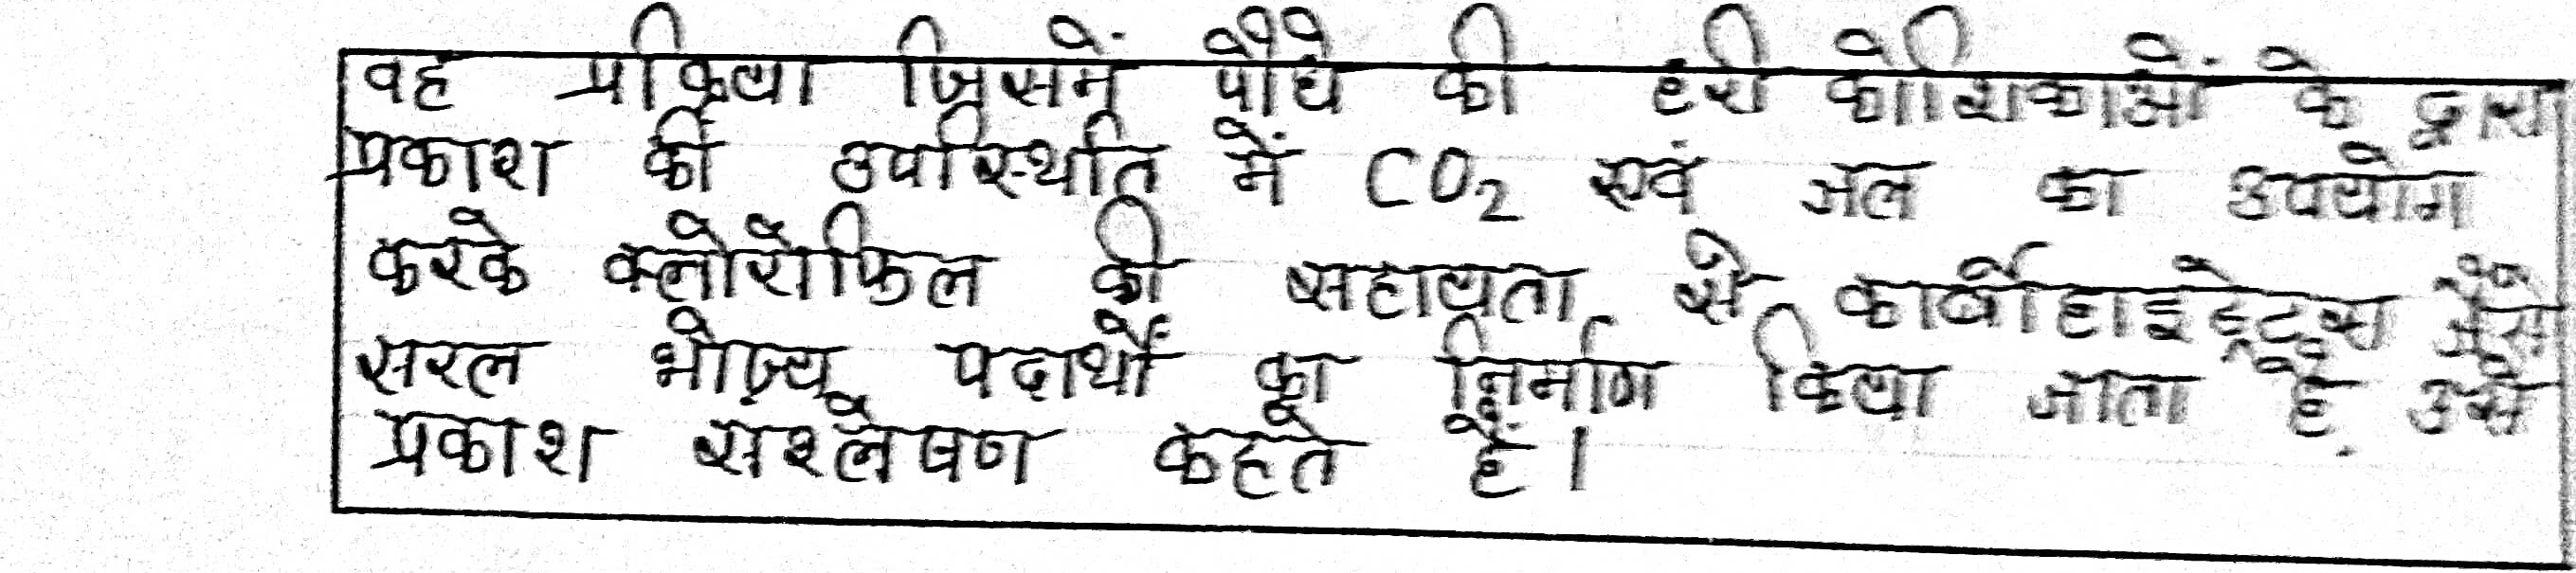 वह प्रक्रिया जिसमें पौधे की हरी कोशिकाओं के द्वारा
प्रकाश की उपस्थिति में CO₂ एवं जल का उपयोग
करके क्लोरोफिल की सहायता से कार्बोहाइड्रेट्स जैसे
सरल भोज्य पदार्थों का निर्माण किया जाता है, उसे
प्रकाश संश्लेषण कहते हैं।